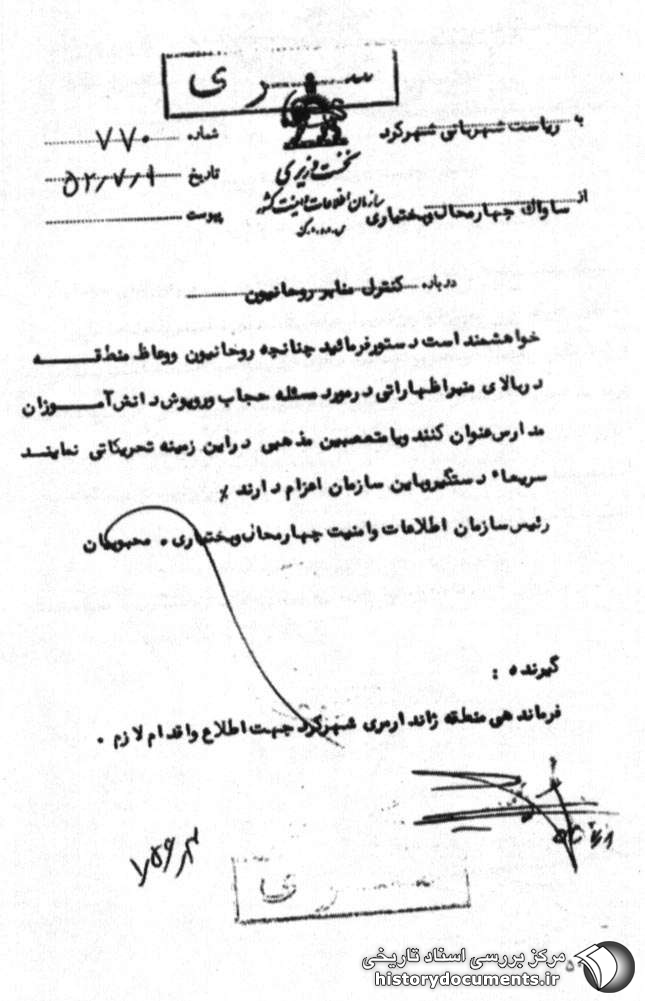 سری
به ریاست شهربانی شهرکرد
شماره ۷۷۰
نخست وزیری
تاریخ
سازمان اطلاعات و امنیت کشور
از ساواک چهارمحال وبختیاری
پیوست
درباره کنترل منابر روحانیون
خواهشمند است دستورفرمائید چنانچه روحانیون ووعاظ منطقه
دربالای منبراظهاراتی درمورد مسئله حجاب وروپوش دانش آموزان
مدارس عنوان کنند ویا متعصبین مذهبی دراین زمینه تحریکاتی نمایند
سریعاً دستگیروباین سازمان اعزام دارند ٪
رئیس سازمان اطلاعات وامنیت چهارمحال وبختیاری . محبوبیان
گیرنده :
فرماندهی منطقه ژاندارمری شهرکرد جهت اطلاع واقدام لازم .
سری
مرکز بررسی اسناد تاریخی
historydocuments.ir